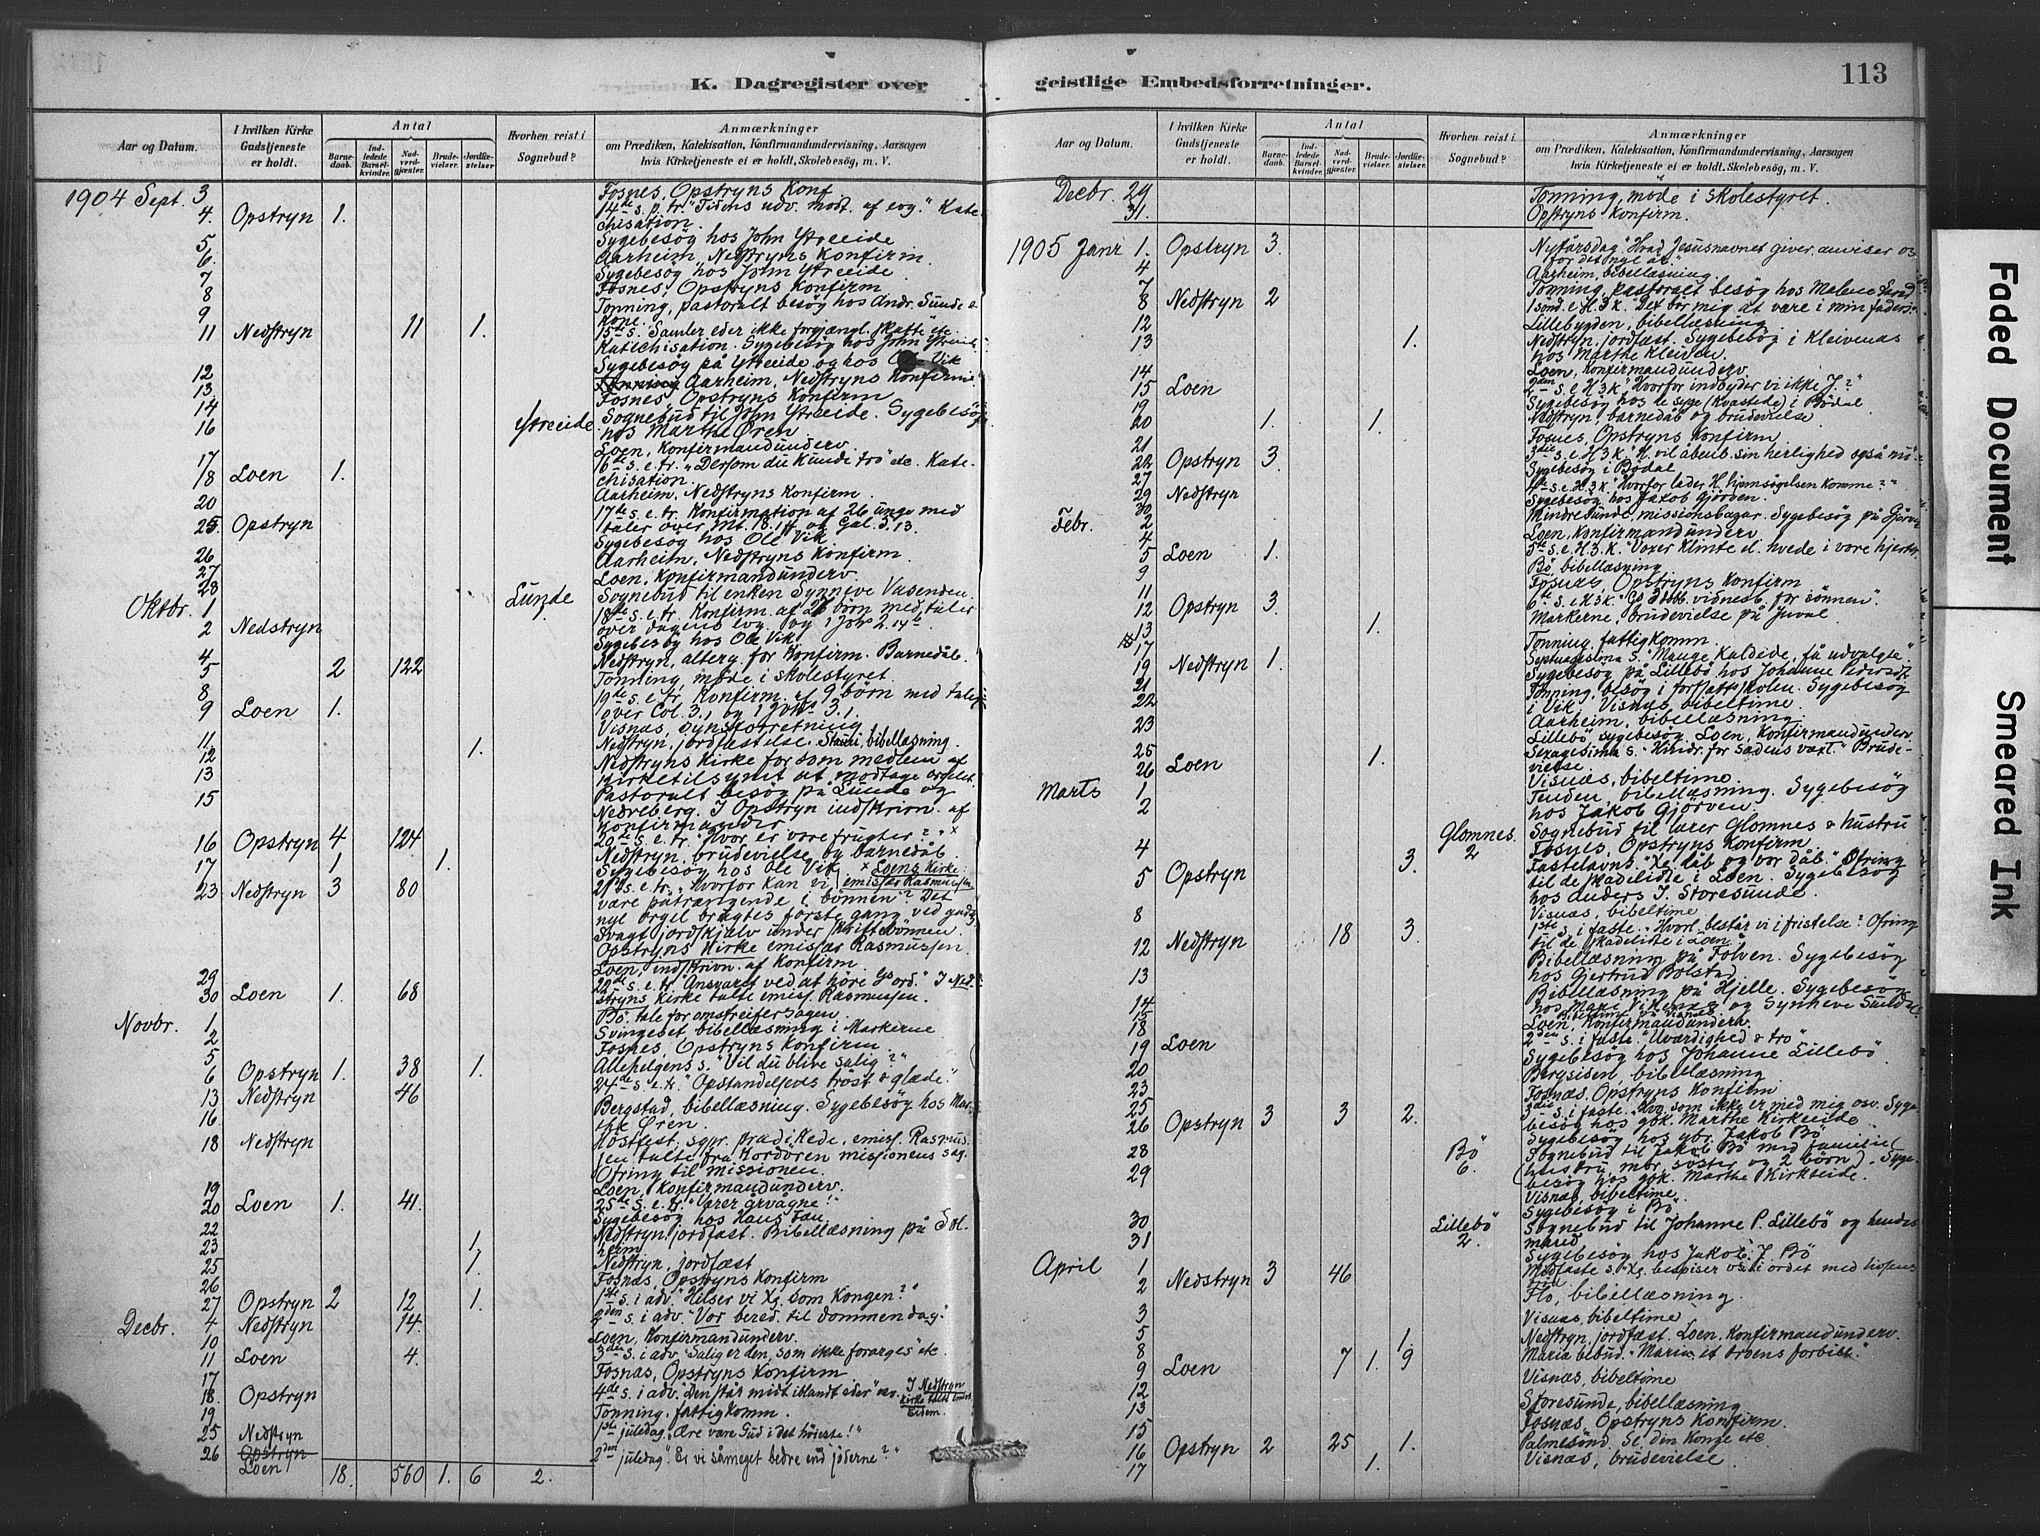 K. Dagregister over
geistlige Embedsforretninger.
113
Aar og Datum.
I hvilken Kirke Gudstjeneste er holdt.
Antal
Barnedaab.
Indledede Barselkvinder.
Nadverdgjæster.
Brudevielser.
Jordfæstelser
Hvorhen reist i Sognebud?
Anmærkninger
om Prædiken, Katekisation, Konfirmandundervisning, Aarsagen
hvis Kirketjeneste ei er holdt, Skolebesøg, m. V.
1904 Sept. 3 Fosnes, Opstryns Konf.
4. Opstryn 1. 14de s. p. tr. udv. modt. af evg." Kate-
chisation.
5. Sygebesøg hos John Ytreeide
6. Aarheim, Nedstryns Konfirm.
7 Sygebesøg hos John Ytreeide
8 Fosnes, Opstryns Konfirm
9 Tonning, pastoralt besøg hos Andr. Sunde &
Kone.
11 Nedstryn 11 1. 15de s. Samler eder ikke forgjængl. skatte etc.
Katechisation. Sygebesøg hos John Ytreeide
12 Sygebesøg på Ytreeide og hos Ole Vik
13 Aarheim, Nedstryns Konfirm
14 Fosnes, Opstryns Konfirm
16 Ytreeide Sognebud til John Ytreeide. Sygebesøg
hos Marthe Øren
17 Loen, Konfirmandunderv.
18 Loen 1. 16de s. e. tr. "Dersom du kunde tro" etc. Kate-
chisation.
20 Aarheim, Nedstryns Konfirm.
25. Opstryn 17de s. e. tr. Konfirmation af 26 unge med
taler over Mt. 18.14 og Gal. 3.13
26 Sygebesøg hos Ole Vik
27 Aarheim, Nedstryns Konfirm
28 Loen, Konfirmandunderv.
Oktbr. 1 Lunde Sognebud til enken Synneve Vasenden.
2 Nedstryn 18de s. e. tr. Konfirm. af børn med taler
over dagens evg. og 1 Joh 2.
4 Sygebesøg hos Ole Vik
5 2 122 Nedstryn, alterg. for Konfirm. Barnedåb.
8 Tonning, møde i skolestyret.
9 Loen 1. 19de s. e. tr. Konfirm. af 9 børn med tale
over Col. 3.1 og 1 Joh 3.1.
11 Visnæs, synsforretning
12 1. Nedstryn, jordfæstelse. bibellæsning.
13 Nedstryns Kirke for som medlem af
Kirketilsynet at modtage orgelet
15 Pastoralt besøg på Sunde og
Nedreberg. I Opstryn indskrivn. af
Konfirmander
16 Opstryn 4 124 20de s. e. tr. "Hvor er vore frugter?" x
17 1 1. Nedstryn, brudevielse og barnedåb.
Sygebesøg hos Ole Vik x Loens Kirke
23 Nedstryn 3 80 21de s. e. tr. "Hvorfor kan vi emissær Rasmussen
være påtrængende i bønnen? Det
nye orgel brugtes første gang ved
Svagt jordskjælv under skriftebønnen.
Opstryns Kirke emissær Rasmussen
29 Loen, indskrivn. af Konfirm.
30 Loen 1. 68 22de s. e. tr. "Ansvaret ved at høre Gs ord." I Ned-
stryns Kirke talte emiss. Rasmussen.
Novbr. 1 Bø. tale for omstreifersagen.
2 Svingeset bibellæsning i Markerne
5 Fosnes, Opstryns Konfirm
6 Opstryn 1. 38 1. Allehelgens s. "Vil du blive salig?"
13 Nedstryn 46 24de s. e. tr. "Opstandelsens trøst & glæde."
16 Bergstad, bibellæsning. Sygebesøg hos Mar-
the Øren.
18 Nedstryn Høstfest. sgpr. prædikede, emiss. Rasmus-
sen talte missionens sag.
Ofring til missionen.
19 Loen, Konfirmandunderv.
20 Loen 1. 41. 25de s. e. tr. "Værer årvågne!"
22 Sygebesøg hos Hans
23 1. Nedstryn jordfæst. Bibellæsning på Sol-
heim
25 1. Nedstryn, jordfæst
26 Fosnæs, Opstryns Konfirm
27 Opstryn 2 12 1. 1ste s. i adv. "Helser vi Xg. som Kongen?"
Decbr. 4 Nedstryn 14. 2den s. i adv. "Vor bered. til dommendag."
10 Loen, Konfirmandunderv.
11 Loen 4. 3die s. i adv. "Salig er den, som ikke forarges" etc
17 Fosnæs, Opstryns Konfirm
18. Opstryn 4de s. i adv. "Den står midt iblandt eder" osv. I Nedstryn
kirke talte
19 Tonning, fattigkomm.
25 Nedstryn 1ste juledag. "Ære være Gud i det høieste!"
26 Opstryn
Loen 2den juledag "Er vi såmeget bedre end jøderne?"
18. 560 1. 6 2.
Aar og Datum.
I hvilken Kirke Gudstjeneste er holdt.
Antal
Barnedaab.
Indledede Barselkvinder.
Nadverdgjæster.
Brudevielser.
Jordfæstelser.
Hvorhen reist i Sognebud?
Anmærkninger
om Prædiken, Katekisation, Konfirmandundervisning, Aarsagen
hvis Kirketjeneste ei er holdt, Skolebesøg, m. V.
Decbr. 29 Tonning, møde i skolestyret.
31. Opstryns Konfirm.
1905 Janr 1. Opstryn 3. Nytårsdag "Hvad Jesusnavnet giver, anviser os
for det nye år."
4 Aarheim, bibellæsning.
7 Tonning, pastoralt besøg hos Malene
8 Nedstryn 2 1 sønd. e. H. 3 K. "Det bør mig at være i min faders"
12 Lillebygden, bibellæsning
13 1. Nedstryn, jordfæst. Sygebesøg i Kleivenæs
hos Marthe Kleiven.
14 Loen, Konfirmandunderv.
15 Loen 2den s. e. H 3 K "Hvorfor indbyder vi ikke J?"
19 Sygebesøg hos i Bødal
20 1. 1. Nedstryn, barnedåb og brudevielse
21 Fosnes, Opstryns Konfirm
22 Opstryn 3. 3die s. e. H 3 K. "H. vil åbenb. sin herlighed også
27 Sygebesøg i Bødal
29 Nedstryn 4de s. e. H. 3 K. "Hvorfor lader H. hjemsøgelsen komme?"
30 Sygebesøg hos Jakob Gjørven.
Febr. 2 Mindresunde, missionsbazar. Sygebesøg på Gjørven
4 Loen, Konfirmandunderv.
5 Loen 1. 5te s. e. H. 3. K. "Voxer Klinte el. hvede i vore hjerter
9 Bø, bibellæsning
11 Fosnæs, Opstryns Konfirm
12 Opstryn 3. 6te s. e. H 3 K "Gs dobb. vidnesb. for sønnen".
13 1. Markerne, brudevielse på Juval
17 Tonning, fattigkomm.
19 Nedstryn 1. Septuagesima s. "Mange kaldede, få udvalgte"
21 Sygebesøg på Lillebø hos Johanne
22 Tonning, besøg i fortsatts skolen. Sygebesøg
i Vik. Visnæs, bibeltime.
23 Aarheim, bibellæsning
25 Lillebø sygebesøg. Loen, Konfirmandunderv.
26 Loen 1. Sexagesima s. "Hindr. for sædens vaxt." Brude-
vielse.
Marts 1 Visnæs, bibeltime
2 Tenden, bibellæsning. Sygebesøg
hos Jakob Gjørven
4 Glomnes. 2 Sognebud til lærer Glomnes & hustru
Fosnes, Opstryns Konfirm
5 Opstryn 3. Fastelavns s. "Xg. dåb og vor dåb." Ofring
til de skadelidte i Loen. Sygebesøg
hos Anders J. Storesunde.
8 Visnæs, bibeltime
12 Nedstryn 18 3. 1ste s. i faste. "Hvorl. består vi i fristelse? Ofring
til de skadelidte i Loen.
13 Bibellæsning på Folven. Sygebesøg
hos Gjertrud Bolstad.
14 Bibellæsning på Hjelle. Sygebesøg
hos og Synneve
15 Bibeltime på Visnes
18 Loen, Konfirmandunderv.
19 Loen 2den s. i faste. "Uværdighed & tro"
20 Sygebesøg hos Johanne Lillebø
23 bibellæsning
25 Fosnæs, Opstryns Konfirm
26 Opstryn 3 3 2. 3die s. i faste. "Hvo som ikke er med mig osv. Syge-
besøg hos gbk. Marthe Kirkeeide
28 Bø 6. Sygebesøg hos gbr. Jakob Bø
29 Sognebud til Jakob Bø med familie
(hustru, søster og 2 børn). Syge-
besøg hos gbk. Marthe Kirkeeide.
Visnæs, bibeltime.
30 Sygebesøg i Bø.
31 Lillebø 2. Sognebud til Johanne P. Lillebø og hendes
mand
April 1 Sygebesøg hos Jakob J. Bø
2 Nedstryn 3 46 Midfaste s. "Xg. bespiser os i ordet med livsens
brød
3 Flo, bibellæsning.
5 Visnæs, bibeltime
8 1. Nedstryn, jordfæst. Loen, Konfirmandunderv.
9 Loen 7 1. 9 Mariæ bebud. "Maria et troens forbill."
12 Visnæs, bibeltime
13 Storesunde, bibellæsning
15 Fosnæs, Opstryns Konfirm.
16 Opstryn 2 25 1. Palmesønd. Se din Konge etc
17 1. Visnæs, brudevielse.
Faded Document
Smeared Ink